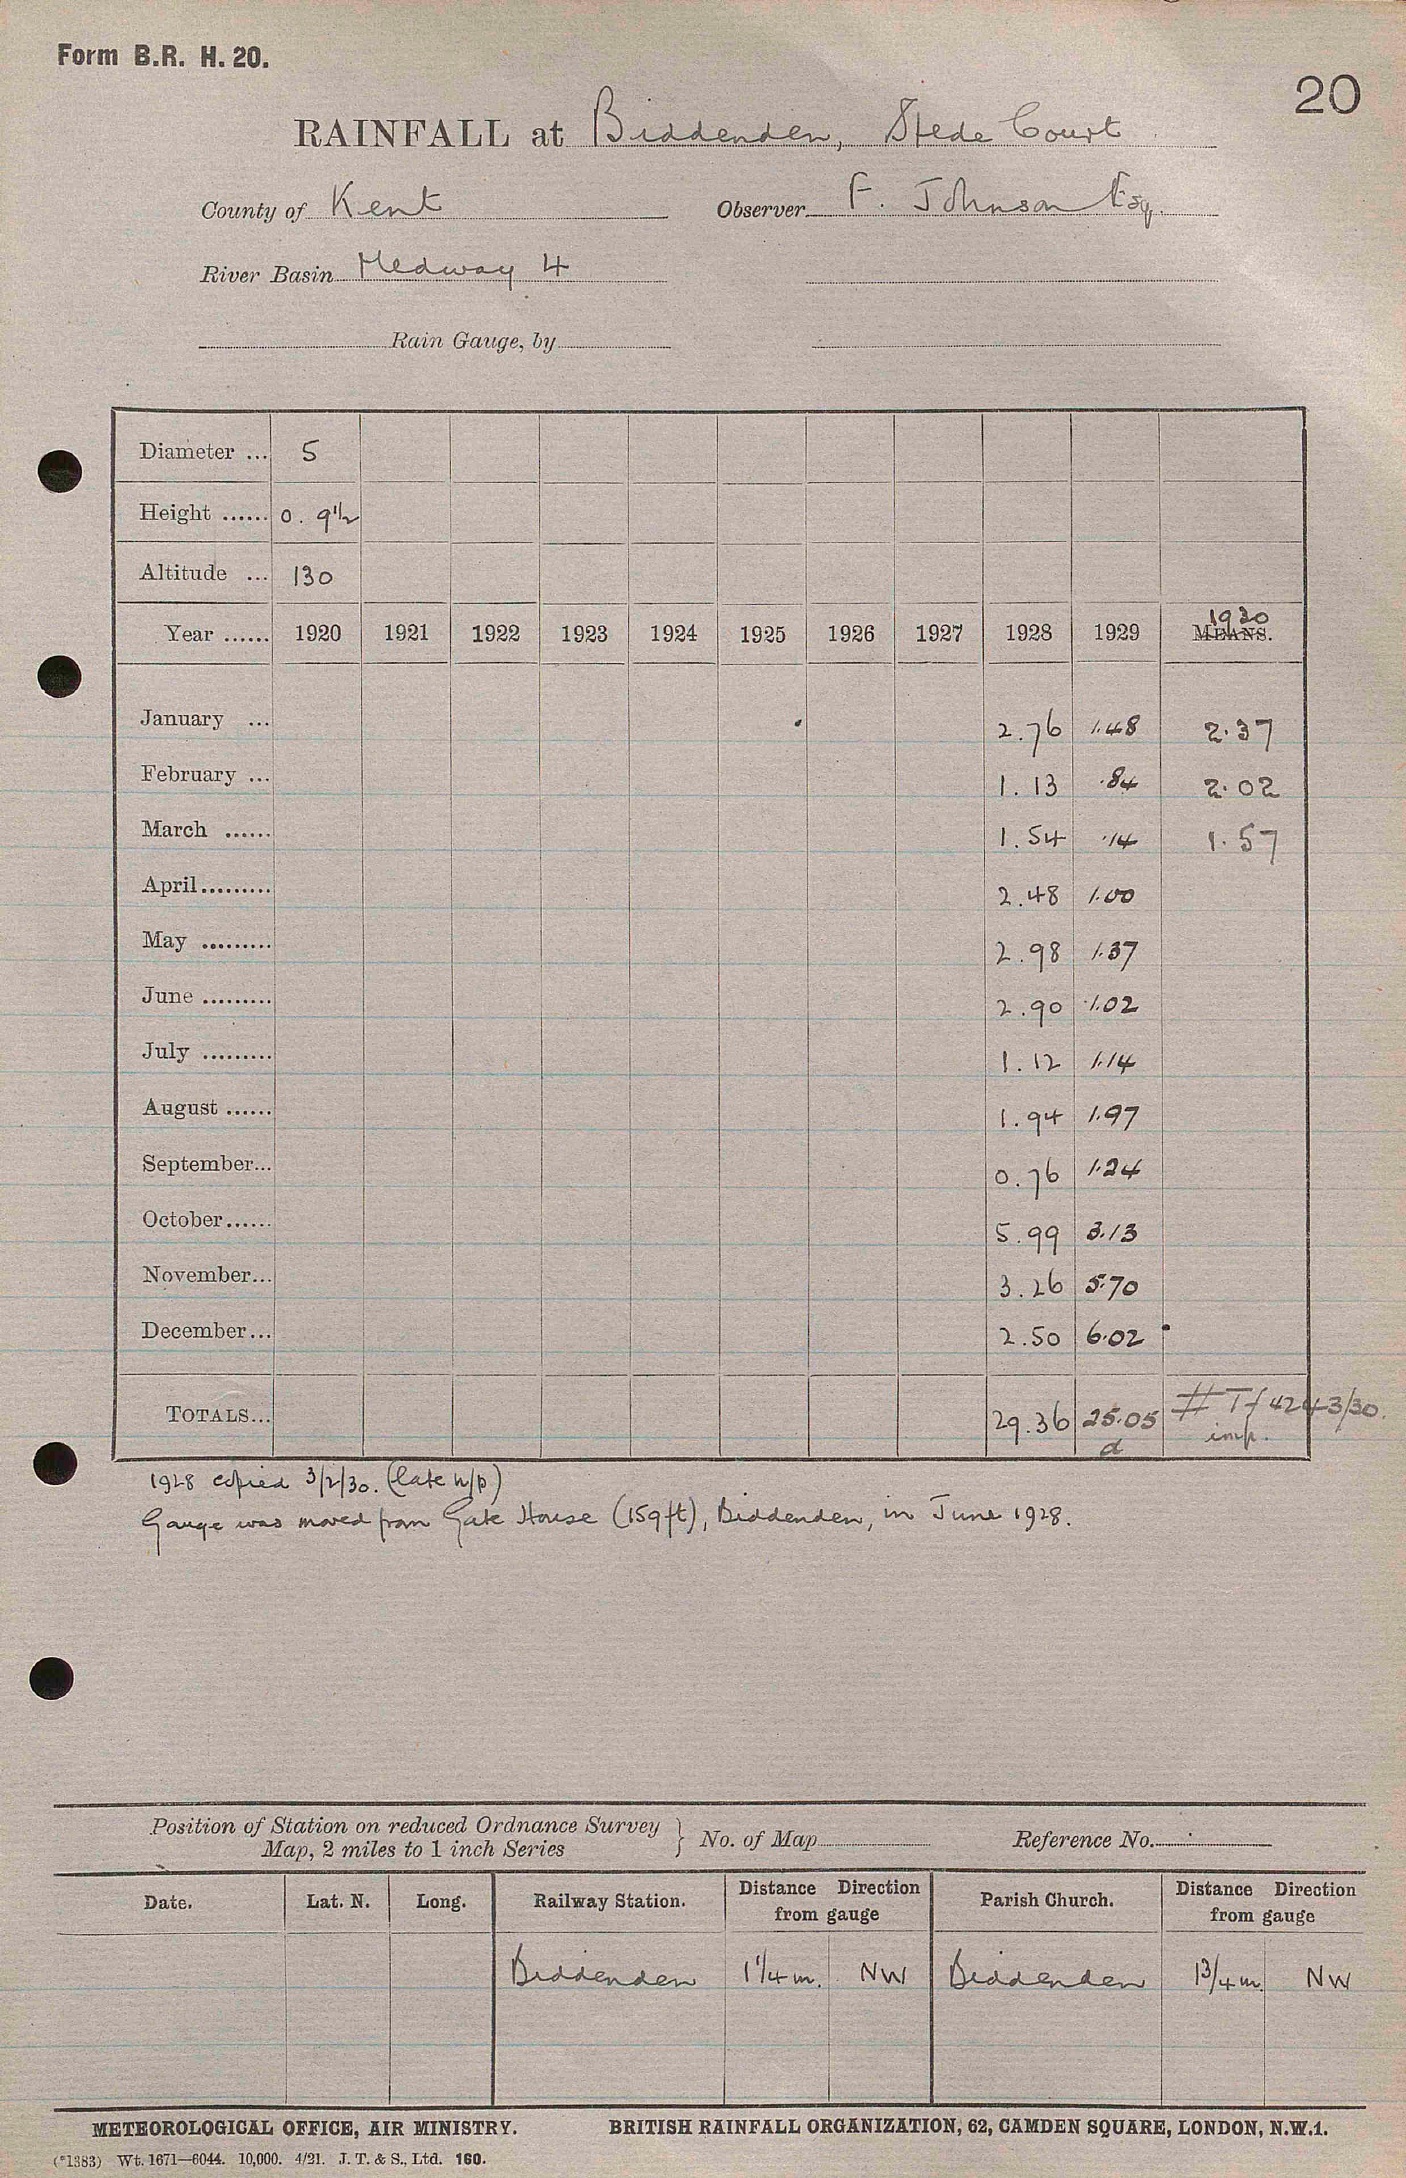 Form B.R. H. 20.
20
RAINFALL at Biddenden, Stede Court
County of Kent Observer F. Johnson Esq.
River Basin Medway 4
Rain Gauge, by
Diameter ... 5
Height ...... 0. 9½
Altitude ... 130
1930
Year ...... 1920 1921 1922 1923 1924 1925 1926 1927 1928 1929 MEANS.
January ... 2.76 1.48 2.37
February ... 1.13 .84 2.02
March ...... 1.54 .14 1.57
April......... 2.48 1.00
May ......... 2.98 1.37
June ......... 2.90 1.02
July ......... 1.12 1.14
August ...... 1.94 1.97
September... 0.76 1.24
October...... 5.99 3.13
November... 3.26 5.70
December... 2.50 6.02
TOTALS... 29.36 25.05 # Tf 4243/30.
d imp.
1928 copied 3/2/30. (late n/p)
Gauge was moved from Gate House (159ft), Biddenden, in June 1928.
Position of Station on reduced Ordnance Survey
Map, 2 miles to 1 inch Series } No. of Map Reference No.
Date. Lat. N. Long. Railway Station. Distance Direction from gauge Parish Church. Distance Direction from gauge
Biddenden 1¼ m. NW Biddenden 1¾ m. NW
METEOROLOGICAL OFFICE, AIR MINISTRY. BRITISH RAINFALL ORGANIZATION, 62, CAMDEN SQUARE, LONDON, N.W.1.
(*1383) Wt. 1671—6044. 10,000. 4/21. J. T. & S., Ltd. 160.